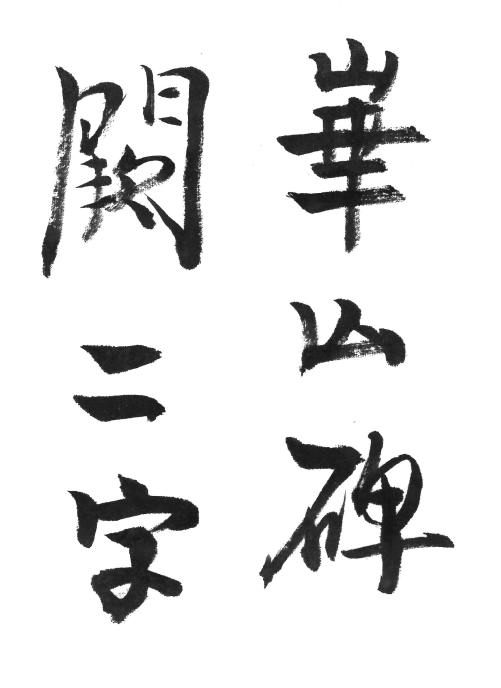 崋山碑
闕二字